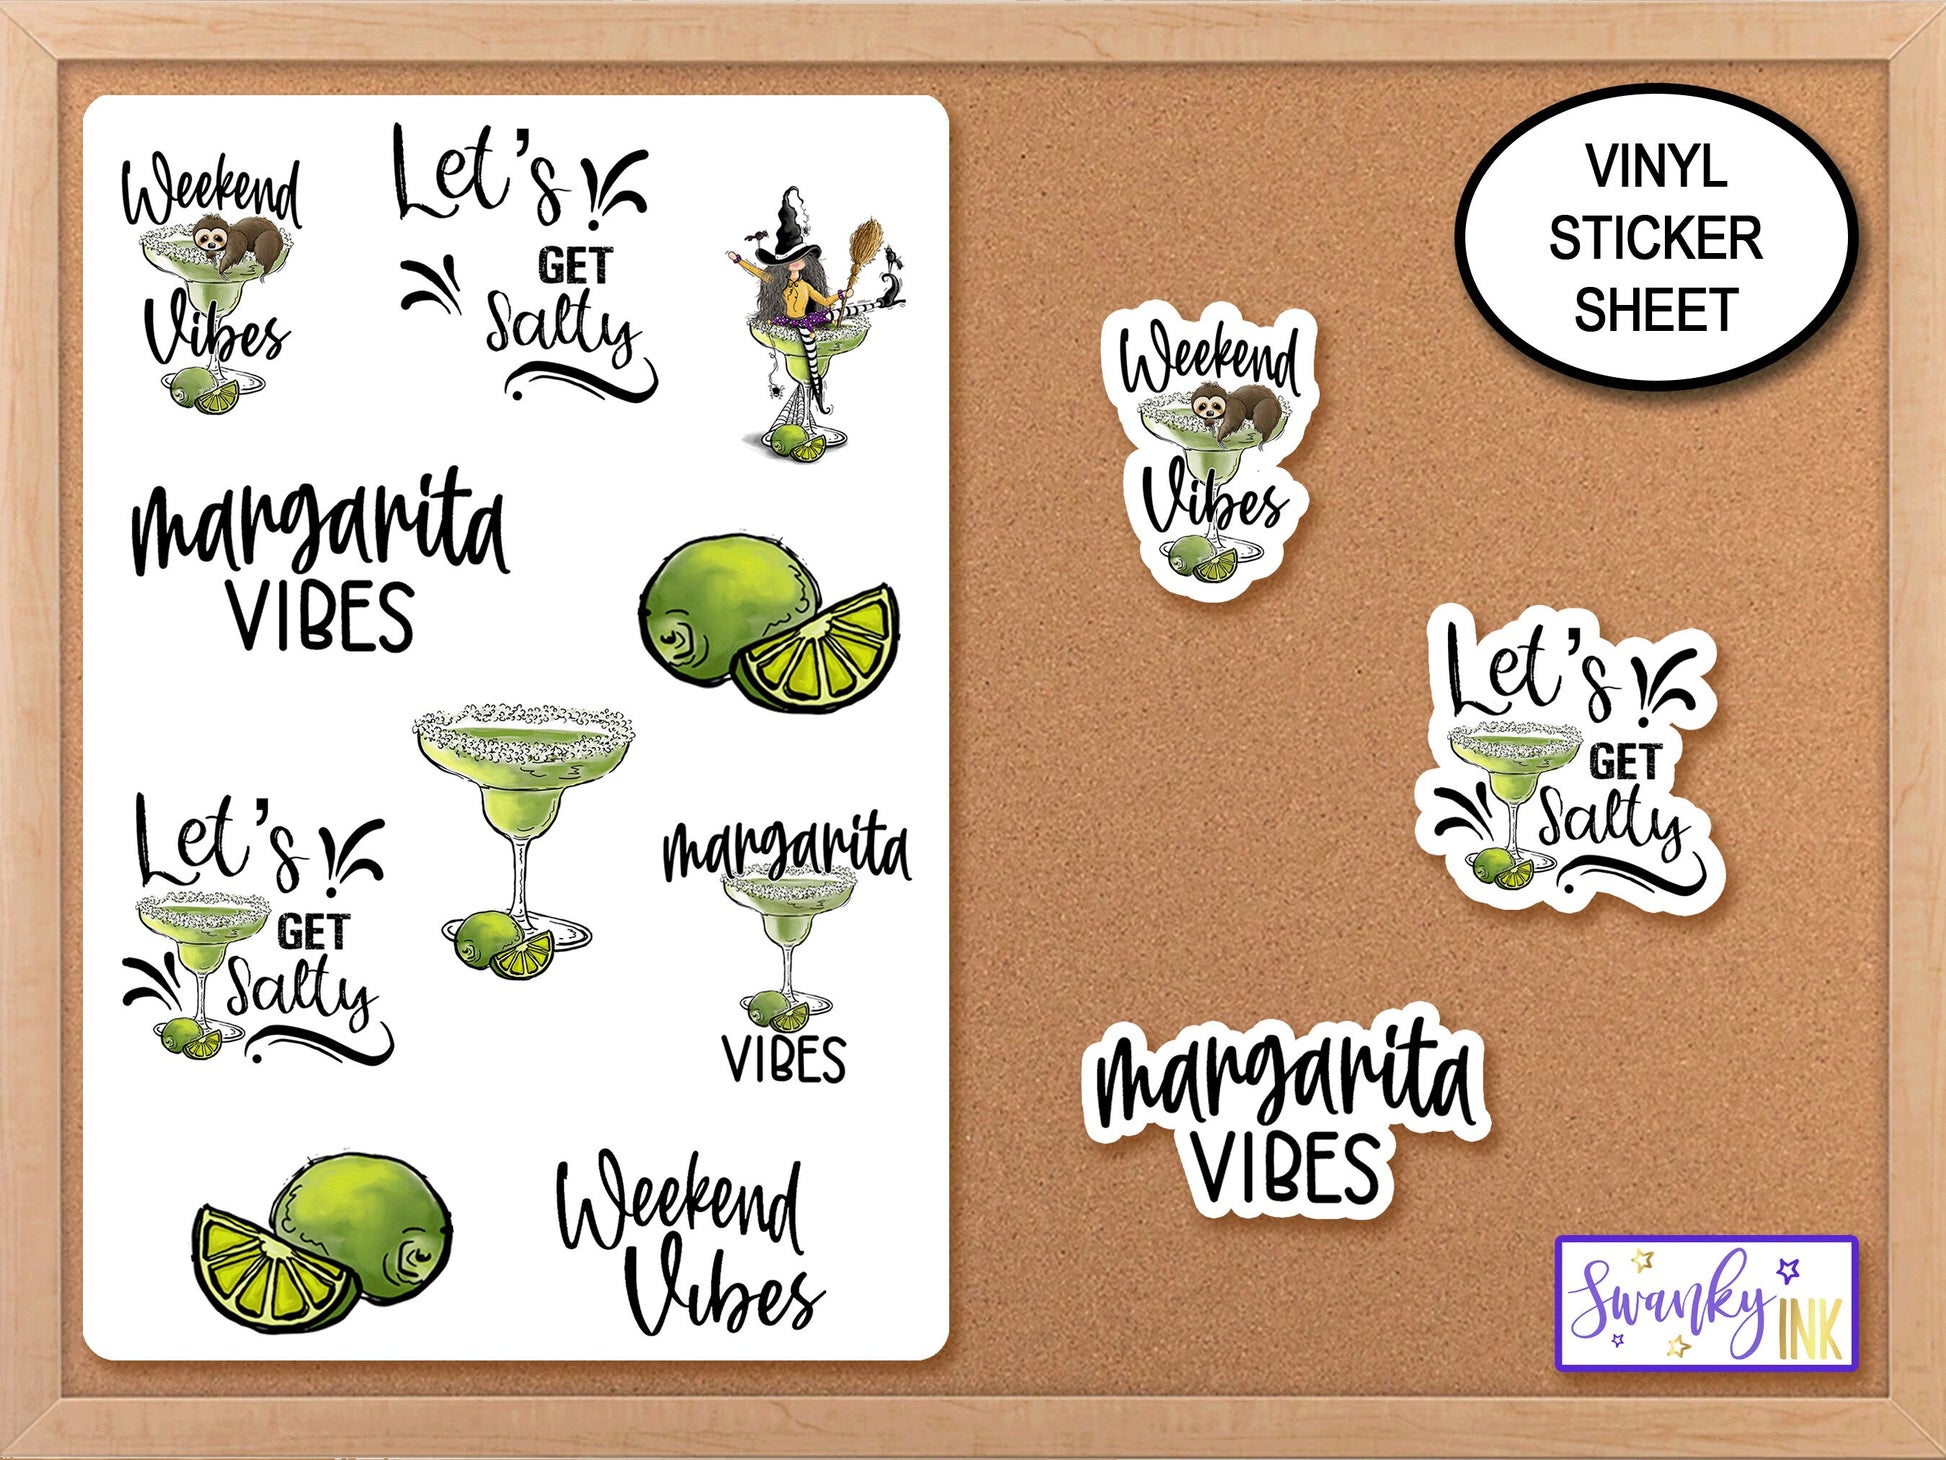 Weekend
Vibes
Let's
GET
Salty
margarita
VIBES
Let's
GET
Salty
margarita
VIBES
Weekend
Vibes
VINYL
STICKER
SHEET
Weekend
Vibes
Let's
GET
Salty
margarita
VIBES
Swanky
INK